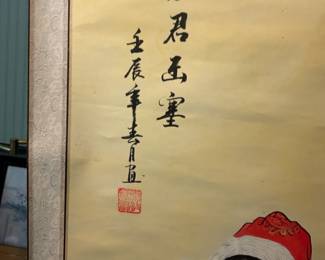 君出塞
壬辰年春月画